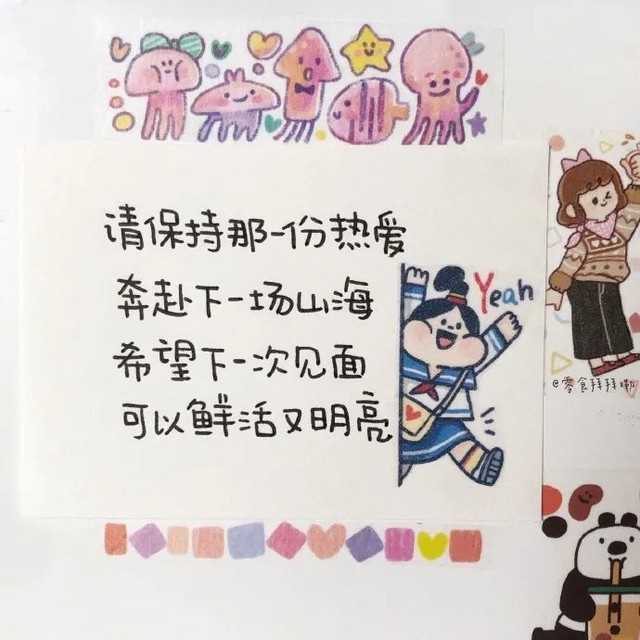 请保持那一份热爱
奔赴下一场山海
希望下一次见面
可以鲜活又明亮
Yeah
@零食拜拜嘞